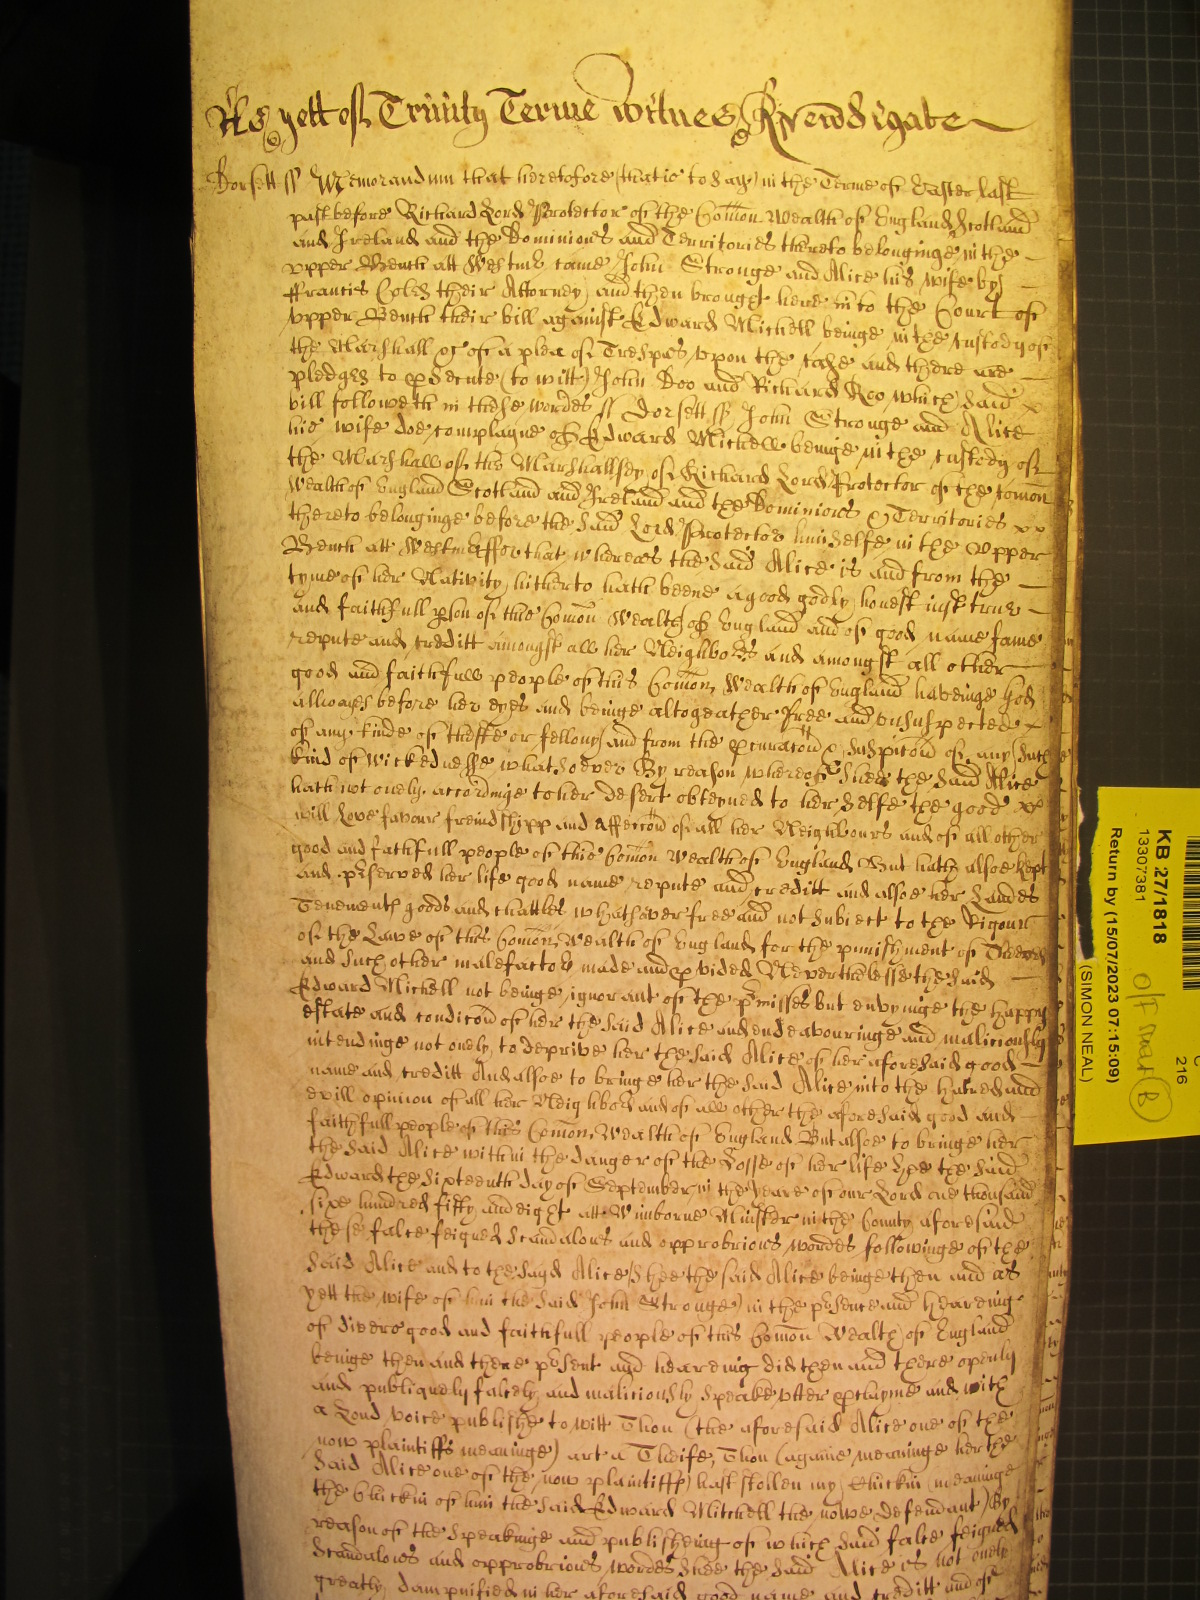 As yett of Trinity Terme witnes R Newdigate
Dorsett ss Memorandum that heretofore (that is to say) in the Terme of Easter last
past before Richard Lord Protector of the Comon Wealth of England Scotland
and Ireland and the Dominions and Territories thereto belonginge in the
upper Bench att Westmr came John Stronge and Alice his wife by
ffrancis Coles their Attorney and then brought here into the Court of
upper Bench their bill against Edward Michell beinge in the custody of
the Marshall &c of a plea of Trespas upon the case and there are
pledges to psecute (to witt) John Doo and Richard Roo which said
bill followeth in these wordes ss Dorsett ss John Stronge and Alice
his wife doe complayne of Edward Michell beinge in the custody of
the Marshall of the Marshallsey of Richard Lord Protector of the Comon
Wealth of England Scotland and Ireland and the Dominions & Territories
thereto belonginge before the said Lord Protector himselfe in the Upper
Bench att Westmr ffor that whereas the said Alice is and from the
tyme of her Nativity hitherto hath beene a good godly honest just true
and faithfull pson of this Comon Wealth of England and of good name fame
repute and creditt amongst all her Neighbors and amongst all other
good and faithfull people of this Comon Wealth of England haveinge God
allwayes before her eyes and beinge altogeather free and unsuspected
of any kinde of theffte or fellony and from the & suspicon of any such
kind of wickednesse whatsoever By reason whereof shee the said Alice
hath not onely accordinge to her desert obteyned to her selfe the good
will Love favour freindshipp and Affeccon of all her Neighbours and of all other
good and faithfull people of this Comon Wealth of England But hath alsoe kept
and pserved her life good name repute and creditt and alsoe her Landes
Tenements goods and chattles whatsoever free and not subject to the Rigour
of the Lawe of this Comon Wealth of England for the punishment of Theeves
and such other malefactors made and pvided Neverthelesse the said
Edward Michell not beinge ignorant of the pmisses but envyinge the happy
estate and condicon of her the said Alice and endeavouringe and maliciously
intendinge not onely to deprive her the said Alice of her aforesaid good
name and creditt And alsoe to bringe her the said Alice into the hatred and
evill opinion of all her Neighbors and of all other the aforesaid good and
faithfull people of this Comon Wealth of England But alsoe to bringe her
the said Alice within the danger of the Losse of her life hee the said
Edward the sixteenth day of September in the yeare of our Lord one thousand
sixe hundred fifty and eight att Wimborne Minster in the County aforesaid
these false feigned scandalous and opprobrious wordes followinge of the
said Alice and to the sayd Alice (shee the said Alice beinge then and as
yett the wife of him the said John Stronge) in the psence and heareing
of divers good and faithfull people of this Comon Wealth of England
beinge then and there psent and heareing did then and there openly
and publiquely falcely and maliciously speake utter pclayme and with
a Loud voice publishe to witt Thou (the aforesaid Alice one of the
now plaintiffs meaninge) art a Theife, Thou (againe meaninge her the
said Alice one of the now plaintiffs) hast stollen my Chickin (meaninge
the Chickin of him the said Edward Mitchell the nowe Defendant) By
reason of the speakinge and publisheing of which said falce feigned
scandalous and opprobrious wordes shee the said Alice is not onely
greatly dampnified in her aforesaid good name and creditt and of
KB 27/1818
13307381
Return by (15/07/2023 07:15:09)
(SIMON NEAL)
216